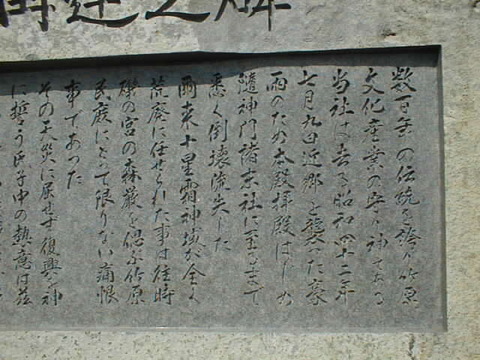 再建之碑
数百年の伝統を誇り竹原
文化産業の守り神である
当社は去る昭和四十二年
七月九日近郷を襲った豪
雨のため本殿拝殿はじめ
随神門諸末社に至るまで
悉く倒壊流失した
爾来十星霜神域が全く
荒廃に任せられた事は往時
礒の宮の森厳を偲ぶ竹原
民庶にとって限りない痛恨
事であった
その天災に屈せず復興を神
に誓う氏子中の熱意は茲